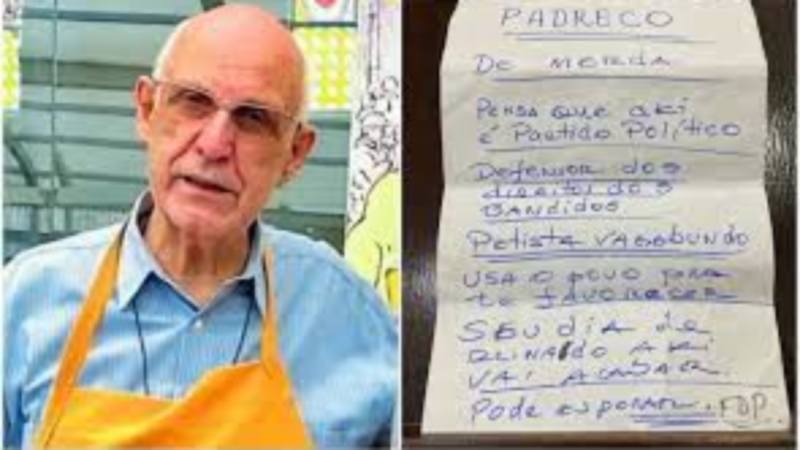 PADRECO
De MERDA
PENSA QUE AKI
é Partido Político
Defensor dos
direitos dos
BANDIDOS
Petista VAGABUNDO
USA O POVO PARA
te FAVORECER
SEU DIA de
REINADO AKI
VAI ACABAR.
Pode esperar. FDP.